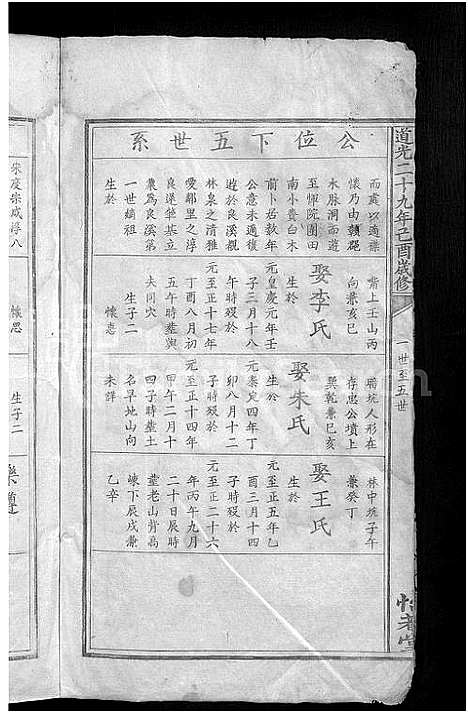 道光二十九年己酉歲修
一世至五世
公位下五世系
而處以適襟
懷乃由贛㵾
水脉洞而遊
至恠院團田
南小貴白木
前卜岩数年
公意未適復
遊於良溪觀
林泉之清雅
愛鄰里之淳
良遂築基立
農為良溪第
一世鵷祖
生於
嘴上壬山丙
向兼亥巳
娶李氏
生於
元皇慶元年壬
子三月十八
午時歿於
元至正十七年
丁酉八月初
五午時葬與
夫同穴
生子二
懷忠
鵰坑人形在
存忠公墳上
巽乾兼巳亥
娶朱氏
生於
元泰定四年丁
卯八月十二
子時歿於
元至正十四年
甲午二月十
四子時葬土
名旱地山向
未詳
林中坑子午
兼癸丁
娶王氏
生於
元至正五年乙
酉三月十四
子時歿於
元至正二十六
年丙午九月
二十日辰時
葬老山背高
峽下辰戌兼
乙辛
宋度宗咸淳八
懷恩
生子二
樂道